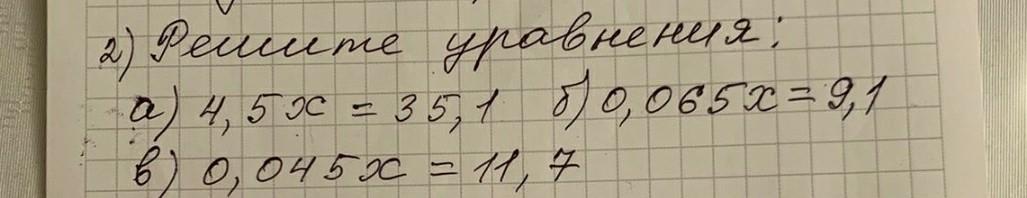 2) Решите уравнения:
а) 4,5x = 35,1 б) 0,065x = 9,1
в) 0,045x = 11,7